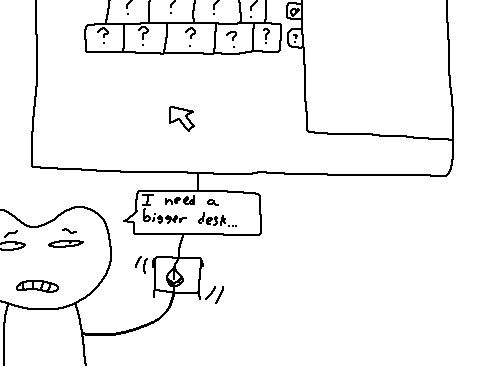 ? ? ? ?
? ? ? ? ? ?
I need a
bigger desk...